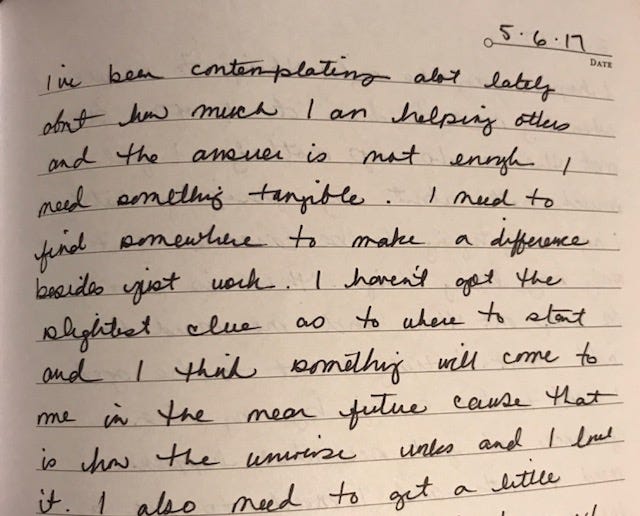 5.6.17
DATE
i've been contemplating alot lately
about how much I am helping others
and the answer is not enough I
need something tangible. I need to
find somewhere to make a difference
besides just work. I haven't got the
slightest clue as to where to start
and I think something will come to
me in the near future cause that
is how the universe works and I love
it. I also need to get a little